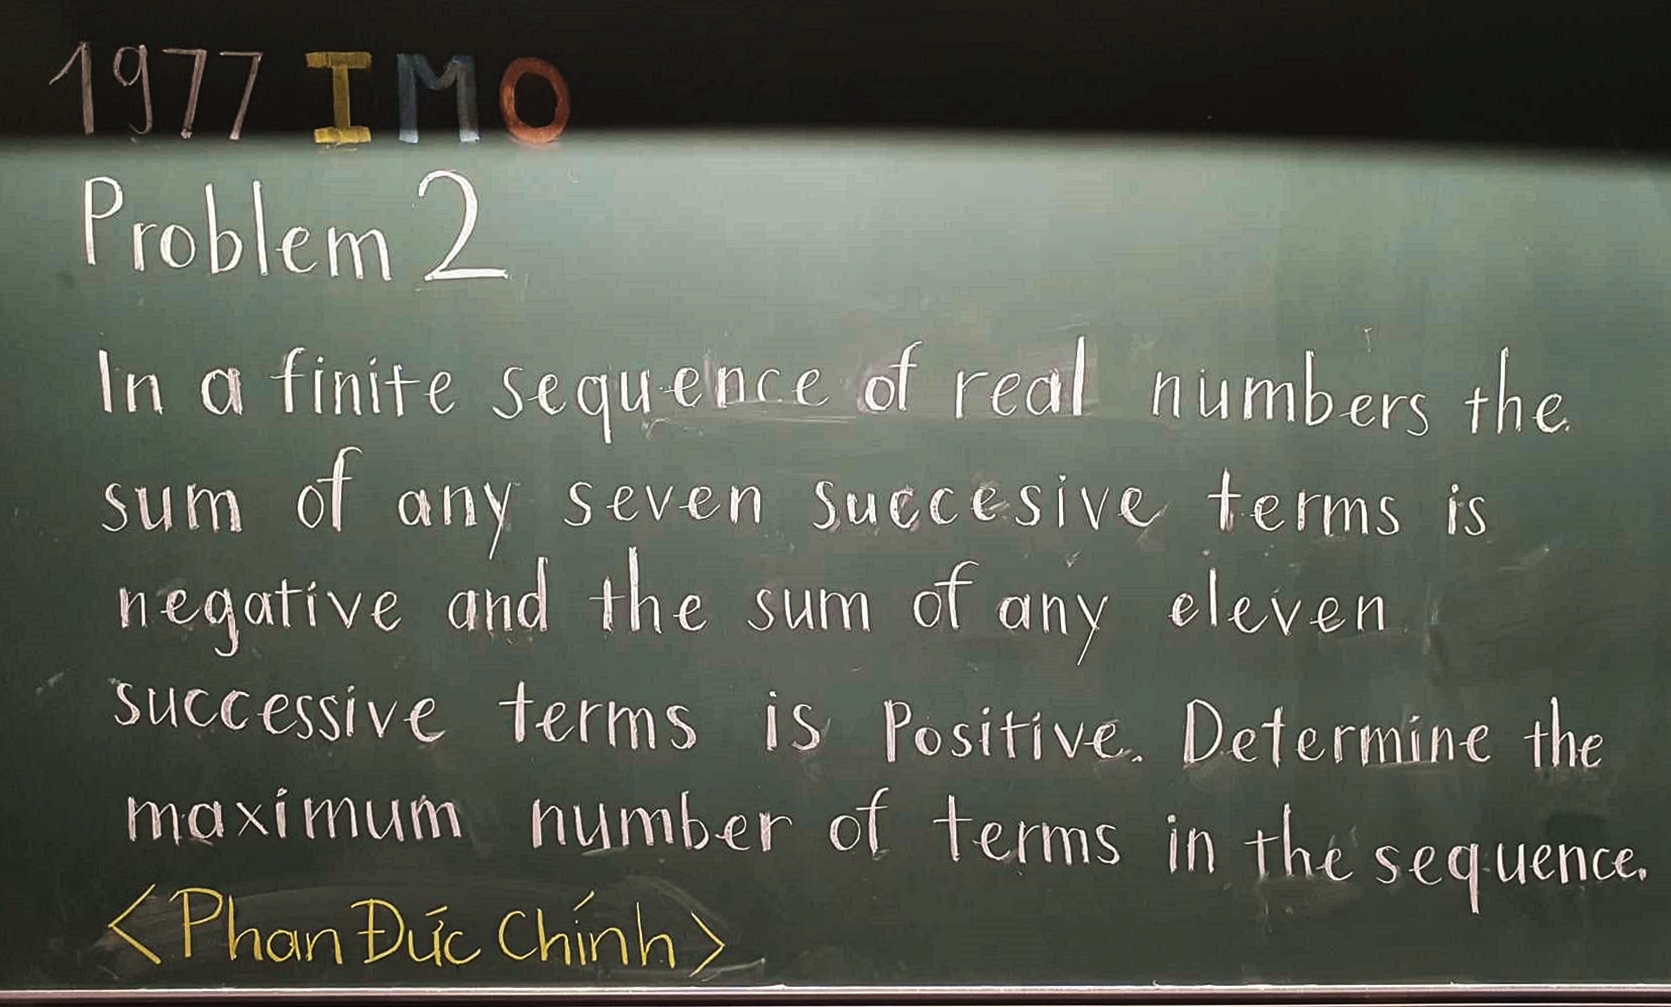 1977 IMO
Problem 2
In a finite sequence of real numbers the
sum of any seven succesive terms is
negative and the sum of any eleven
successive terms is Positive. Determine the
maximum number of terms in the sequence.
<Phan Đức Chính>